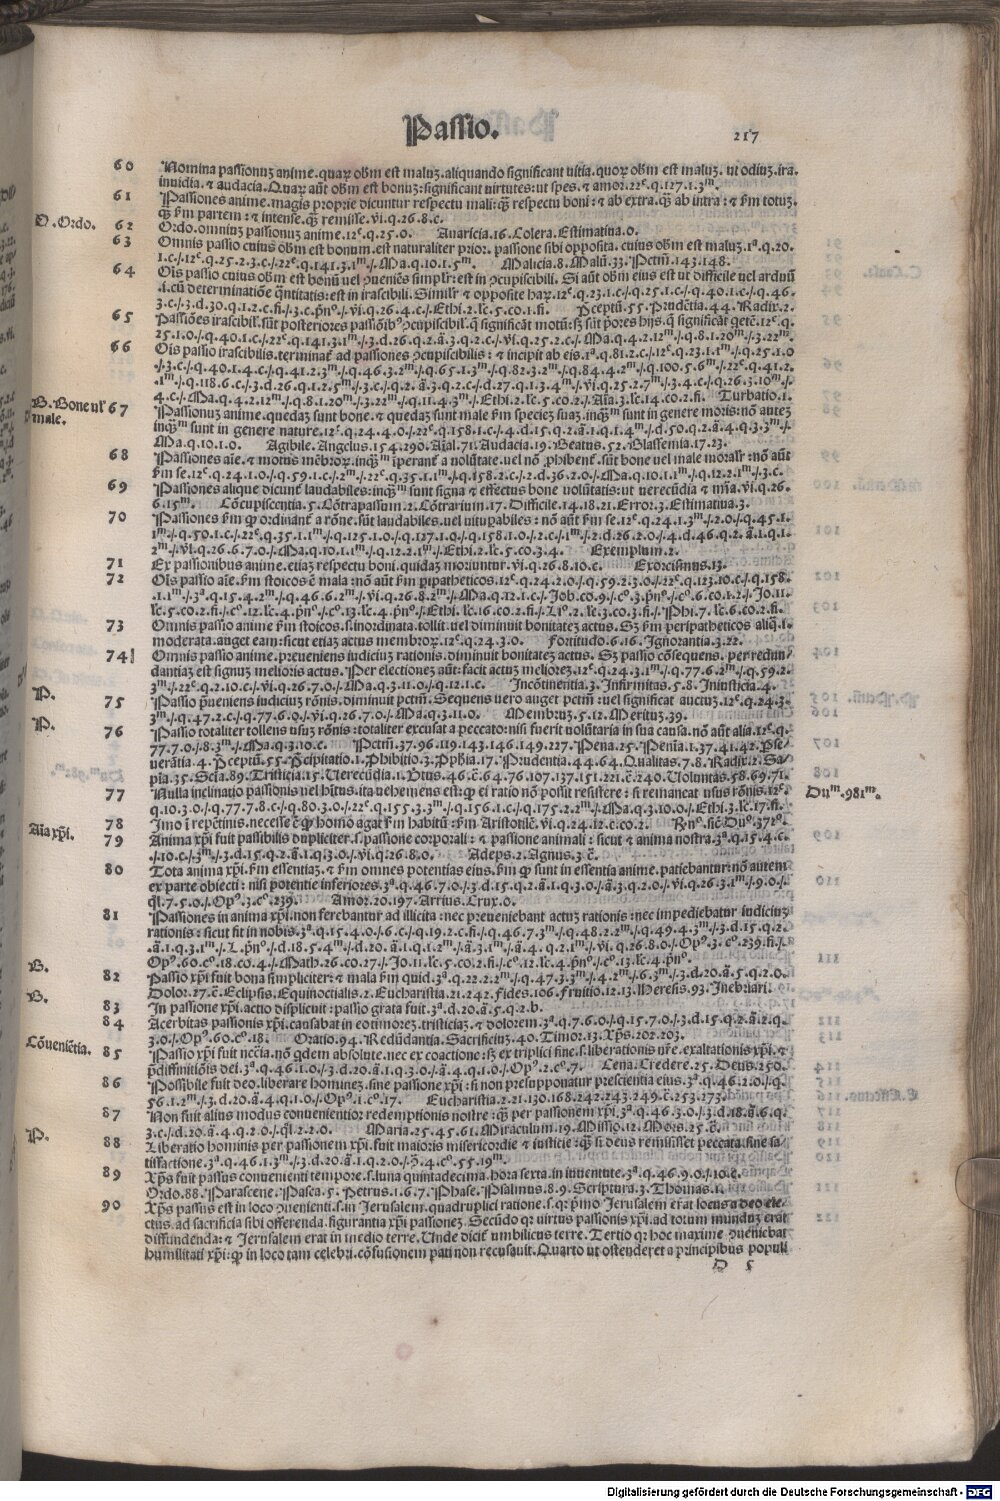 Passio.
217
60 Nomina passionuz anime.quaꝝ obm est maluz.aliquando significant uitia.quoꝝ obm est maluz. ut odiuz.ira.
inuidia.⁊ audacia.Quaꝝ aūt obm est bonuz:significant uirtutes:ut spes.⁊ amor.22ᵉ.q.127.1.3ᵐ.
61 Passiones anime.magis proprie dicuntur respectu mali:qꝫ respectu boni:⁊ ab extra.qꝫ ab intra:⁊ ẜm totuz.
qꝫ ẜm partem:⁊ intense.qꝫ remisse.vi.q.26.8.c.
D.Ordo. 62 Ordo.omniuz passionuz anime.12ᵉ.q.25.0. Auaricia.16.Colera.Estimatiua.0.
63 Omnis passio cuius obm est bonum.est naturaliter prior. passione sibi opposita.cuius obm est maluz.1ᵃ.q.20.
1.c./12ᵉ.q.25.2.3.c./22ᵉ.q.141.3.1ᵐ./Ma.q.10.1.5ᵐ. Malicia.8.Malū.33.Pctm̄.143.148.
64 Oīs passio cuius obm est bonū uel ꝯueniēs simplr:est in ꝯcupiscibili. Si aūt obm eius est ut difficile uel arduū
.i.cū determinatiōe q̄ntitatis:est in irascibili. Similr ⁊ opposite haꝝ.12ᵉ.q.23.1.c./q.25.1.c./q.40.1.c./q.46.
3.c./3.d.30.q.1.2.c.fi./3.c.pn̄°./vi.q.26.4.c./Ethi.2.lc.5.co.1.fi. Pceptū.55.Prudētia.44.Radix.2.
65 Passiōes irascibil'.sūt posteriores passiōibꝰ ꝯcupiscibil'.q̄ significāt motū:sꝫ sūt p̄ores hijs.q̄ significāt getē.12ᵉ.q.
25.1.0./q.40.1.c./22ᵉ.q.141.3.1ᵐ./3.d.26.q.2.ā.3.q.2.c./vi.q.25.2.c./Ma.q.4.2.12ᵐ./q.8.1.20ᵐ./3.22ᵐ.
66 Oīs passio irascibilis.terminat' ad passiones ꝯcupiscibilis:⁊ incipit ab eis.1ᵃ.q.81.2.c./12ᵉ.q.23.1.1ᵐ./q.25.1.0
./3.c./q.40.1.4.c./q.41.2.3ᵐ./q.46.3.2ᵐ./q.65.1.3ᵐ./q.82.3.2ᵐ./q.84.4.2ᵐ./q.100.5.6ᵐ./22ᵉ.q.41.2.
.1ᵐ./q.118.6.c./3.d.26.q.1.2.5ᵐ./3.c./q.2.ā.3.q.2.c./d.27.q.1.3.4ᵐ./vi.q.25.2.7ᵐ./3.4.c./q.26.3.10ᵐ./
4.c./Ma.q.4.2.12ᵐ./q.8.1.20ᵐ./3.22ᵐ./q.11.4.3ᵐ./Ethi.2.lc.5.co.2./Aīa.3.lc.14.co.2.fi. Turbatio.1.
B.Bone ul' male. 67 Passionuz anime.quedaz sunt bone.⁊ quedaz sunt male ẜm speciez suaz.inqꝫᵐ sunt in genere moris:nō autez
inqꝫᵐ sunt in genere nature.12ᵉ.q.24.4.0./22ᵉ.q.158.1.c./4.d.15.q.2.ā.1.q.1.4ᵐ./d.50.q.2.ā.4.q.3.3ᵐ./
Ma.q.10.1.0. Agibile.Angelus.154.290.Aīal.71.Audacia.19.Beatus.52.Blasfemia.17.23.
68 Passiones aīe.⁊ motus mēbroꝝ.inqꝫᵐ īperant' a uolūtate.uel nō ꝓhibent'.sūt bone uel male moralr:nō aūt
ẜm se.12ᵉ.q.24.1.0./q.59.1.c./2ᵐ./22ᵉ.q.35.1.1ᵐ./q.158.2.c./2.d.36.2.0./Ma.q.10.1.1ᵐ./q.12.2.1ᵐ./3.c.
69 Passiones alique dicunt' laudabiles:inqꝫᵐ sunt signa ⁊ effectus bone uolūtatis:ut uerecūdia ⁊ mīa.vi.q.26.
6.15ᵐ. Cōcupiscentia.5.Cōtrapassum.2.Cōtrarium.17.Difficile.14.18.21.Error.3.Estimatiua.3.
70 Passiones ẜm ꝙ ordinant' a rōne.sūt laudabiles.uel uituꝑabiles:nō aūt ẜm se.12ᵉ.q.24.1.3ᵐ./2.0./q.45.1.
1ᵐ./q.50.1.c./22ᵉ.q.35.1.1ᵐ./q.125.1.0./q.127.1.0./q.158.1.0./2.c./1ᵐ./2.d.26.2.0./4.d.46.q.2.ā.1.q.1.
2ᵐ./vi.q.26.6.7.0./Ma.q.10.1.1ᵐ./q.12.2.1ᵐ./Ethi.2.lc.5.co.3.4. Exemplum.2.
71 Ex passionibus anime.etiaz respectu boni.quidaz moriuntur.vi.q.26.8.10.c. Exorcismus.13.
72 Oīs passio aīe.ẜm stoicos ē mala:nō aūt ẜm ꝑipatheticos.12ᵉ.q.24.2.0./q.59.2.3.0./22ᵉ.q.123.10.c./q.158.
.1.1ᵐ./3ᵃ.q.15.4.2ᵐ./q.46.6.2ᵐ./vi.q.26.8.2ᵐ./Ma.q.12.1.c./Job.co.9./c°.3.pn̄°./c°.6.co.1.2./Jo.11.
lc.5.co.2.fi./c°.12.lc.4.pn̄°./c°.13.lc.4.pn̄°./Ethi.lc.16.co.2.fi./Li°.2.lc.3.co.3.fi./Phi.7.lc.6.co.2.fi.
73 Omnis passio anime ẜm stoicos.s.inordinata.tollit.uel diminuit bonitatez actus. Sꝫ ẜm peripatheticos aliq̄.i.
moderata.auget eam:sicut etiaz actus membroꝝ.12ᵉ.q.24.3.0. Fortitudo.6.16.Ignorantia.3.22.
74 Omnis passio anime.preueniens iudiciuz rationis.diminuit bonitatez actus. Sꝫ passio cōsequens. per redun/
dantiaz est signuz melioris actus. Per electionez aūt:facit actuz meliorez.12ᵉ.q.24.3.1ᵐ./q.77.6.2ᵐ./q.59.2.
3ᵐ./22ᵉ.q.2.10.c./vi.q.26.7.0./Ma.q.3.11.0./q.12.1.c. Incōtinentia.3.Infirmitas.5.8.Iniusticia.4.
P. 75 Passio p̄ueniens iudiciuz rōnis.diminuit pctm̄.Sequens uero auget pctm̄:uel significat auctuz.12ᵉ.q.24.3.
3ᵐ./q.47.2.c./q.77.6.0./vi.q.26.7.0./Ma.q.3.11.0. Membruz.5.12.Meritus.39.
P. 76 Passio totaliter tollens usuz rōnis:totaliter excusat a peccato:nisi fuerit uolūtaria in sua causa.nō aūt alia.12ᵉ.q.
77.7.0./8.3ᵐ./Ma.q.3.10.c. Pctm̄.37.96.119.143.146.149.227.Pena.25.Penīa.1.37.41.42.Pse/
uerātia.4.Pceptū.55.Pcipitatio.1.Phibitio.3.Pphia.17.Prudentia.44.64.Qualitas.7.8.Radix.2.Sa/
pīa.35.Scīa.89.Tristicia.15.Uerecūdia.1.Ūtus.46.c̄.64.76.107.137.151.221.c̄.240.Uoluntas.58.69.71.
77 Nulla inclinatio passionis uel hītus.ita uehemens est:ꝙ ei ratio nō possit resistere:si remaneat usus rōnis.12ᵉ.
q.10.3.0./q.77.7.8.c./q.80.3.0./22ᵉ.q.155.3.3ᵐ./q.156.1.c./q.175.2.2ᵐ./Ma.q.3.10.0./Ethi.3.lc.17.fi.
Duᵐ.981ᵐ.
78 Imo ī repētinis.necesse ē ꝙ homo agat ẜm habitū:ẜm Aristotilē.vi.q.24.12.c.co.2. Rn̄°.sic̄ Du°.372°.
Aīa xp̄i. 79 Anima xp̄i fuit passibilis dupliciter.s.passione corporali:⁊ passione animali:sicut ⁊ anima nostra.3ᵃ.q.15.4.c.
./10.c./3ᵐ./3.d.15.q.2.ā.1.q.3.0./vi.q.26.8.0. Adeps.2.Agnus.3.c̄.
80 Tota anima xp̄i.ẜm essentiaz.⁊ ẜm omnes potentias eius.ẜm ꝙ sunt in essentia anime.patiebantur:nō autem
ex parte obiecti:nisi potentie inferiores.3ᵃ.q.46.7.0./3.d.15.q.2.ā.1.q.3.0./ā.3.q.2.0./vi.q.26.3.1ᵐ./9.0./
ql.7.5.0./Opꝰ.3.c°.239. Amor.20.197.Arrius.Crux.0.
81 Passiones in anima xp̄i.non ferebantur ad illicita:nec preueniebant actuz rationis:nec impediebatur iudiciuz
rationis:sicut fit in nobis.3ᵃ.q.15.4.0./6.c./q.19.2.c.fi./q.46.7.3ᵐ./q.48.2.2ᵐ./q.49.4.3ᵐ./3.d.15.q.2.
.ā.1.q.3.1ᵐ./L.pn̄°./d.18.5.4ᵐ./d.20.ā.1.q.1.2ᵐ./ā.3.1ᵐ./ā.4.q.2.1ᵐ./vi.q.26.8.0./Opꝰ.3.c°.239.fi./
Opꝰ.60.c°.18.co.4./Math.26.co.27./Jo.11.lc.5.co.2.fi./c°.12.lc.4.pn̄°./c°.13.lc.4.pn̄°.
B. 82 Passio xp̄i fuit bona simpliciter:⁊ mala ẜm quid.3ᵃ.q.22.2.2ᵐ./q.47.3.3ᵐ./4.2ᵐ./6.3ᵐ./3.d.20.ā.5.q.2.0.
Dolor.27.c̄.Eclipsis.Equinoctialis.2.Eucharistia.21.242.Fides.106.Fruitio.12.13.Heresis.93.Inebriari.
B. 83 In passione xp̄i.actio displicuit:passio grata fuit.3ᵃ.d.20.ā.5.q.2.b.
84 Acerbitas passionis xp̄i.causabat in eo timorez.tristiciaz.⁊ dolorem.3ᵃ.q.7.6.0./q.15.7.0./3.d.15.q.2.ā.2.q.
3.0./Opꝰ.60.c°.18. Oratio.94.Redūdantia.Sacrificiuz.40.Timor.13.Xp̄s.202.203.
Cōueniētia. 85 Passio xp̄i fuit nec̄ia.nō q̄dem absolute.nec ex coactione:sꝫ ex triplici fine.s.liberationis nr̄e.exaltationis xp̄i.⁊
p̄diffinitiōis dei.3ᵃ.q.46.1.0./3.d.20.ā.1.q.3.0./ā.4.q.1.0./Opꝰ.2.c°.7. Cena.Credere.25.Deus.250.
86 Possibile fuit deo.liberare hominez.sine passione xp̄i:si non presupponatur prescientia eius.3ᵃ.q.46.2.0./q.
56.1.2ᵐ./3.d.20.ā.4.q.1.0./Opꝰ.1.c°.17. Eucharistia.2.21.130.168.242.243.249.c̄.253.273.
87 Non fuit alius modus conuenientior redemptionis nostre:qꝫ per passionem xp̄i.3ᵃ.q.46.3.0./3.d.18.ā.6.q.
3.c./d.20.ā.4.q.2.0./ql.2.2.0. Maria.25.45.61.Miraculum.19.Missio.12.Mors.25.c̄.
P. 88 Liberatio hominis per passionem xp̄i.fuit maioris misericordie ⁊ iusticie:qꝫ si deus remisisset peccata.sine sa/
tisfactione.3ᵃ.q.46.1.3ᵐ./3.d.20.ā.1.q.2.0./p̄.4.c°.55.19ᵐ.
89 Xp̄s fuit passus conuenienti tempore.s.luna quintadecima.hora sexta.in iuuentute.3ᵃ.q.46.9.0./10.c.
Ordo.88.Parascene.Pasca.5.Petrus.1.6.7.Phase.Psalmus.8.9.Scriptura.3.Thomas.1.
90 Xp̄s passus est in loco ꝯuenienti.s.in Jerusalem.quadruplici ratione.s.qꝛ p̄mo Jerusalem erat locus a deo ele/
ctus.ad sacrificia sibi offerenda.figurantia xp̄i passionez. Secūdo qꝛ uirtus passionis xp̄i.ad totum munduz erat
diffundenda:⁊ Jerusalem erat in medio terre.Unde dicit' umbilicus terre. Tertio qꝛ hoc maxime ꝯueniebat
humilitati xp̄i:ꝙ in loco tam celebri.cōfusionem pati non recusauit.Quarto ut ostenderet a principibus populi
D 5
Digitalisierung gefördert durch die Deutsche Forschungsgemeinschaft - DFG